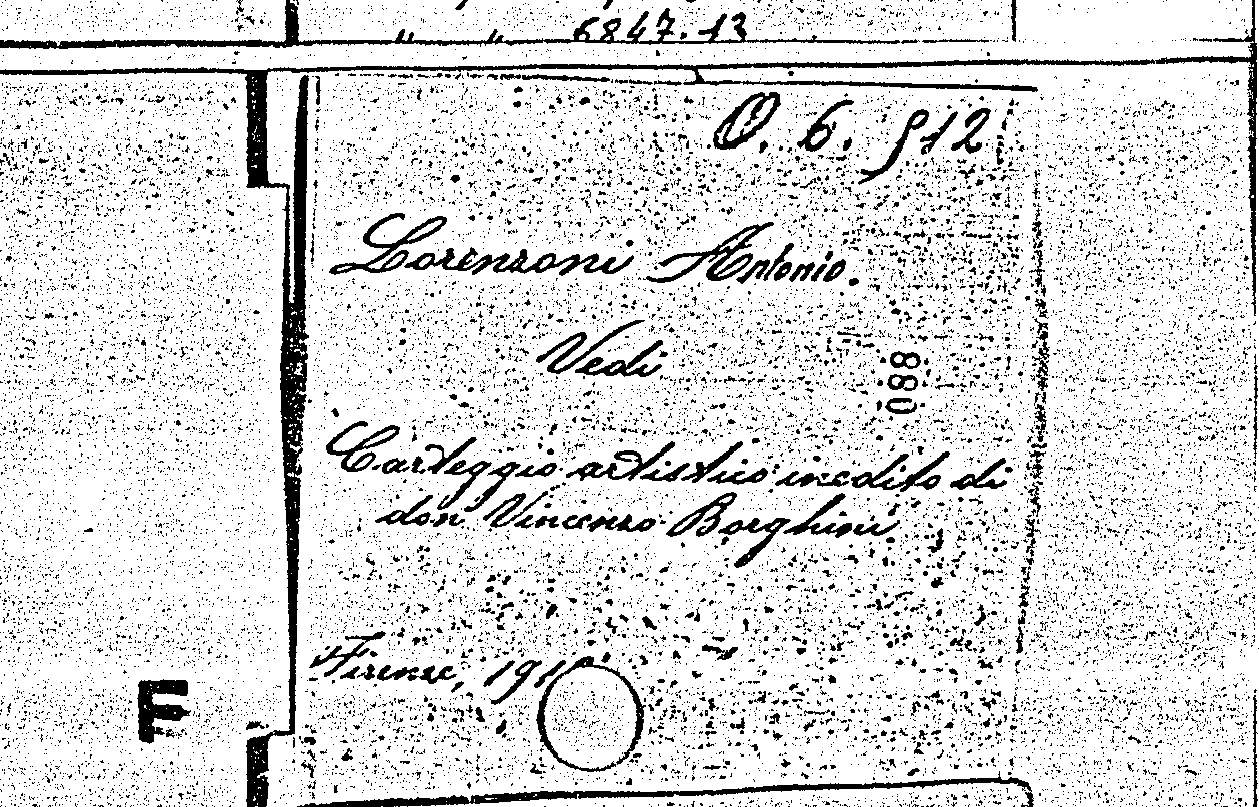 " " 6847.13
O. 6. 912
Lorenzoni Antonio.
Vedi
088
Carteggio artistico inedito di
don Vincenzo Borghini
Firenze, 191
F